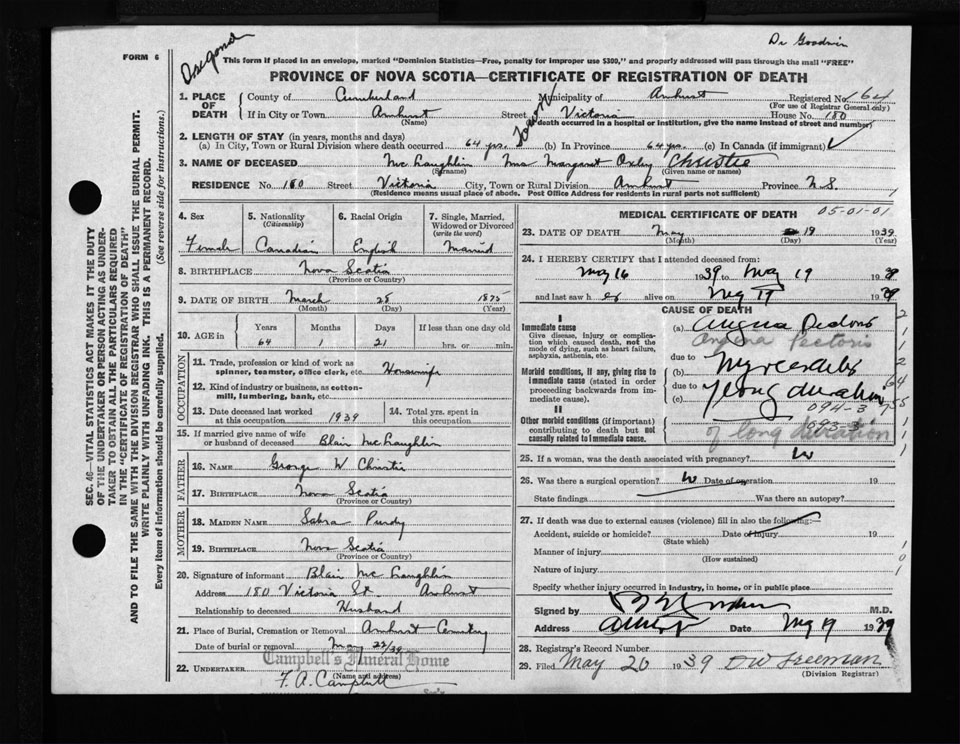 FORM 6
Dr Goodwin
This form if placed in an envelope, marked "Dominion Statistics—Free, penalty for improper use $300," and properly addressed will pass through the mail "FREE"
PROVINCE OF NOVA SCOTIA—CERTIFICATE OF REGISTRATION OF DEATH
SEC. 46—VITAL STATISTICS ACT MAKES IT THE DUTY
OF THE UNDERTAKER OR PERSON ACTING AS UNDER-
TAKER TO OBTAIN ALL THE PARTICULARS REQUIRED
IN THE "CERTIFICATE OF REGISTRATION OF DEATH"
AND TO FILE THE SAME WITH THE DIVISION REGISTRAR WHO SHALL ISSUE THE BURIAL PERMIT.
WRITE PLAINLY WITH UNFADING INK. THIS IS A PERMANENT RECORD.
Every item of information should be carefully supplied. (See reverse side for instructions.)
1. PLACE OF DEATH County of Cumberland Municipality of Amherst Registered No. 164
(For use of Registrar General only)
If in City or Town Amherst Street Victoria House No. 180
(Name) (If death occurred in a hospital or institution, give the name instead of street and number)
2. LENGTH OF STAY (in years, months and days)
(a) In City, Town or Rural Division where death occurred 64 yrs. (b) In Province 64 yrs. (c) In Canada (if immigrant)
3. NAME OF DECEASED McLaughlin Mrs Margaret Oxley Christie
(Surname) (Given name or names)
RESIDENCE No. 180 Street Victoria City, Town or Rural Division Amherst Province N.S.
(Residence means usual place of abode. Post Office Address for residents in rural parts not sufficient)
4. Sex Female
5. Nationality (Citizenship) Canadian
6. Racial Origin English
7. Single, Married, Widowed or Divorced (write the word) Married
8. BIRTHPLACE Nova Scotia
(Province or Country)
9. DATE OF BIRTH March 28 1875
(Month) (Day) (Year)
10. AGE in Years Months Days If less than one day old
64 1 21 hrs. or min.
OCCUPATION
11. Trade, profession or kind of work as spinner, teamster, office clerk, etc. Housewife
12. Kind of industry or business, as cotton-mill, lumbering, bank, etc.
13. Date deceased last worked at this occupation 1939
14. Total yrs. spent in this occupation
15. If married give name of wife or husband of deceased Blair McLaughlin
FATHER
16. NAME George W Christie
17. BIRTHPLACE Nova Scotia
(Province or Country)
MOTHER
18. MAIDEN NAME Sabra Purdy
19. BIRTHPLACE Nova Scotia
(Province or Country)
20. Signature of informant Blair McLaughlin
Address 180 Victoria St. Amherst
Relationship to deceased Husband
21. Place of Burial, Cremation or Removal Amherst Cemetery
Date of burial or removal May 22/39
Campbell's Funeral Home
22. UNDERTAKER (Name and address)
F. A. Campbell
MEDICAL CERTIFICATE OF DEATH 05-01-01
23. DATE OF DEATH May 19 1939
(Month) (Day) (Year)
24. I HEREBY CERTIFY that I attended deceased from:
May 16 1939 to May 19 1939
and last saw her alive on May 19 1939
CAUSE OF DEATH
I
Immediate cause
Give disease, injury or complication which caused death, not the mode of dying, such as heart failure, asphyxia, asthenia, etc.
(a) Angina Pectoris
Angina Pectoris
due to
Morbid conditions, if any, giving rise to immediate cause (stated in order proceeding backwards from immediate cause).
(b) Myocarditis
due to
(c) of long duration
094-3
II
Other morbid conditions (if important) contributing to death but not causally related to immediate cause.
093-3
of long duration
25. If a woman, was the death associated with pregnancy?
26. Was there a surgical operation? Date of operation 19
State findings Was there an autopsy?
27. If death was due to external causes (violence) fill in also the following:—
Accident, suicide or homicide? Date of injury 19
(State which)
Manner of injury
(How sustained)
Nature of injury
Specify whether injury occurred in industry, in home, or in public place
Signed by M.D.
Address Amherst Date May 19 1939
28. Registrar's Record Number
29. Filed May 20 1939 D W Freeman
(Division Registrar)